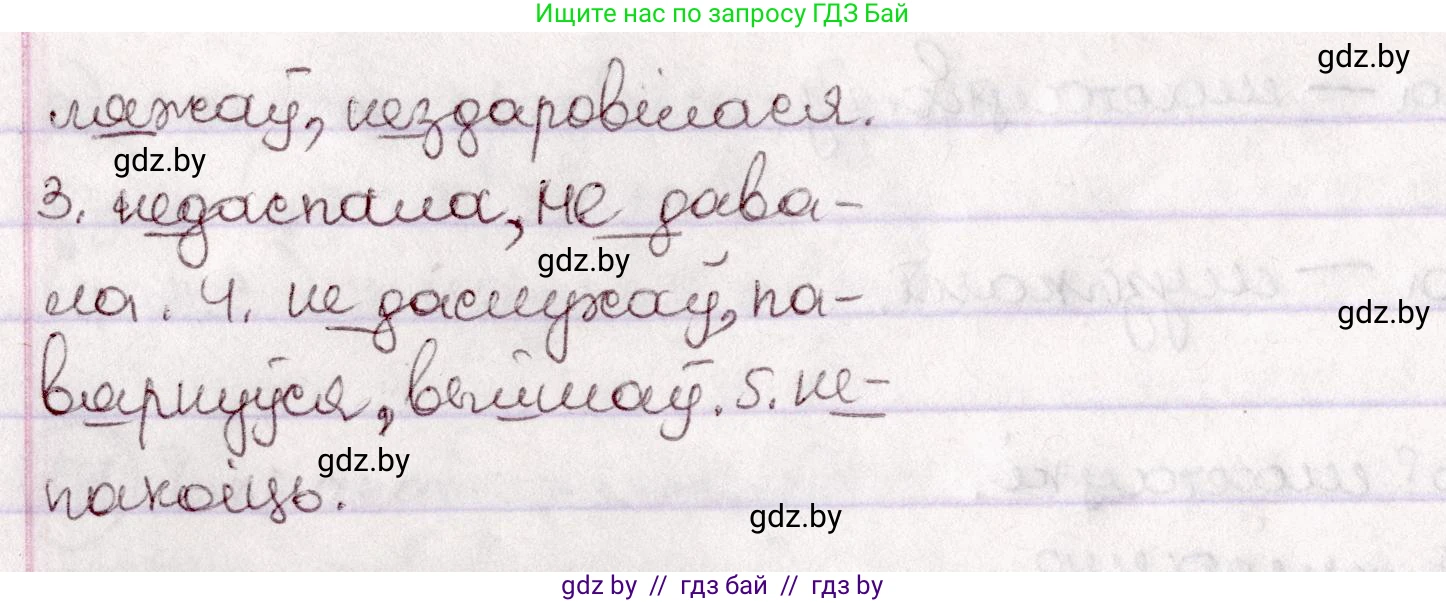 Ищите нас по запросу ГДЗ Бай
gdz.by
ляжаў, нездаровілася.
gdz.by
3. недаспала, не дава-
gdz.by
ла. 4. не даслужаў, па-
gdz.by
вярнуўся, выйшаў. 5. не-
gdz.by
пакоіць.
gdz.by
gdz.by // гдз бай // гдз by